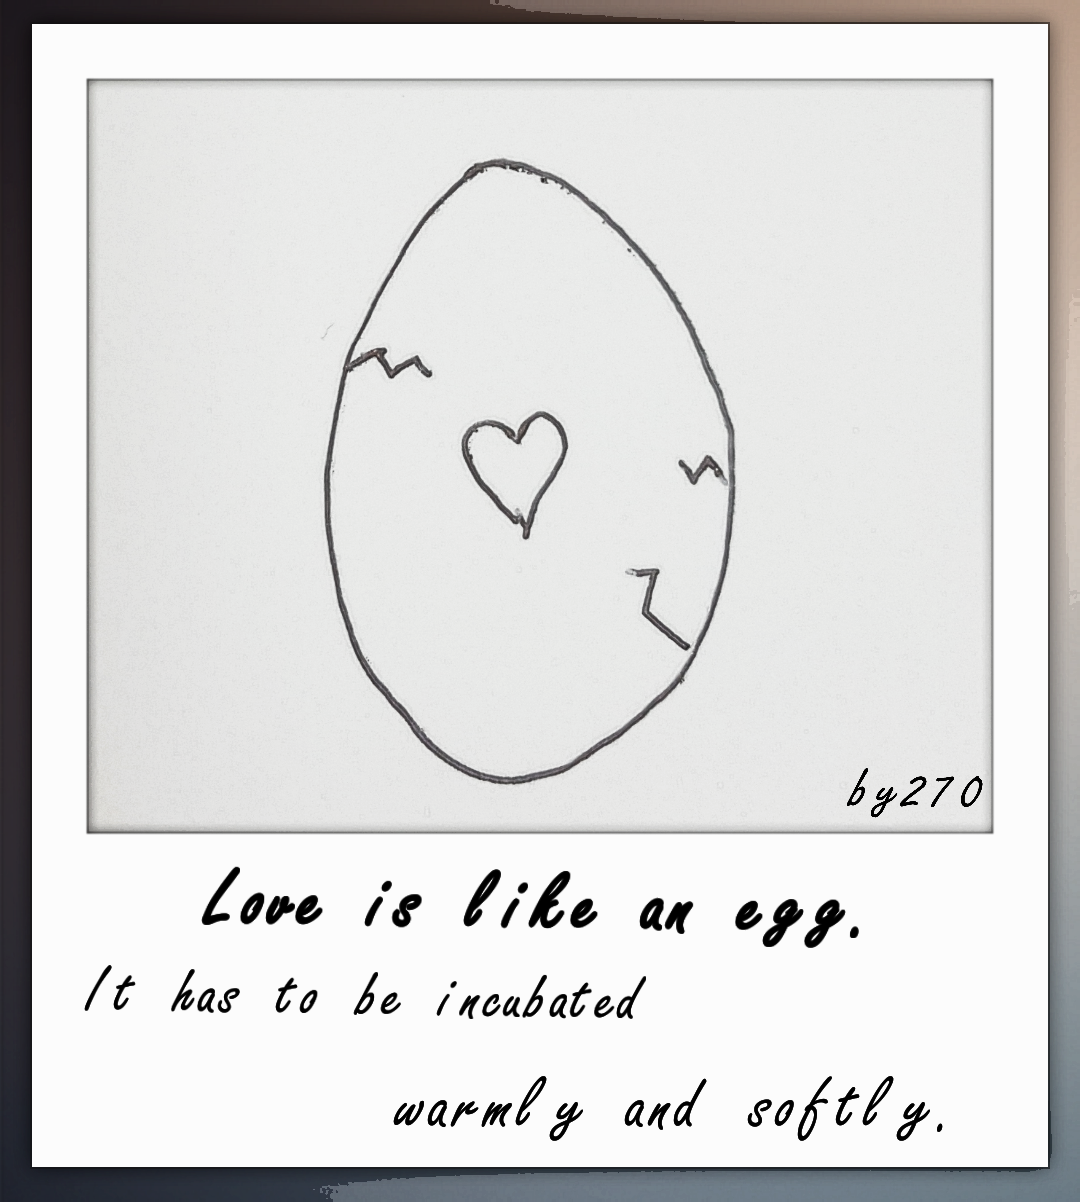 by270
Love is like an egg.
It has to be incubated
warmly and softly.